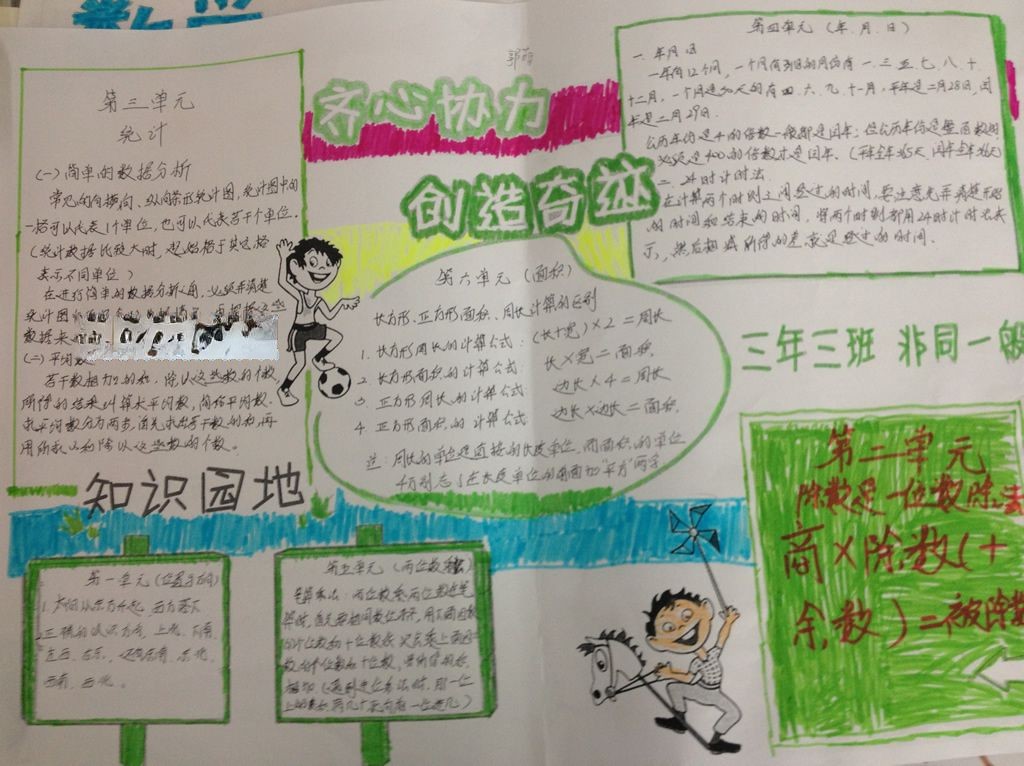 齐心协力
创造奇迹
第三单元
统计
(一)简单的数据分析
常见的有横向、纵向条形统计图,统计图中的
一格可以代表1个单位,也可以代表若干个单位。
(统计数据比较大时,起始格与其它格
表示不同单位)
(二)平均数
若干数相加的和,除以这些数的个数,
所得的结果叫算术平均数,简称平均数。
用所求的和除以这些数的个数。
知识园地
第四单元(年、月、日)
一、年月日
一年有12个月,一个月有31日的月份有一、三、五、七、八、十、
十二月,一个月是30天的有四、六、九、十一月,平年是二月28日,闰
年是二月29日。
公历年份是4的倍数一般都是闰年;但公历年份是整百数的,
必须是400的倍数才是闰年。
二、24时计时法
在计算两个时刻之间经过的时间,要注意先弄清楚开始
的时间和结束的时间,将两个时刻都用24时计时法表
示,然后相减所得的差就是经过的时间。
第六单元(面积)
长方形、正方形面积、周长计算的区别
1. 长方形周长的计算公式:(长+宽)×2=周长
2. 长方形面积的计算公式:长×宽=面积
3. 正方形周长的计算公式:边长×4=周长
4. 正方形面积的计算公式:边长×边长=面积
注:周长的单位是直接的长度单位,而面积的单位
千万别忘了在长度单位的前面加“平方”两字
三年三班 非同一般
第二单元
除数是一位数除法
商×除数(+
余数)=被除数
第一单元(位置与方向)
西南、西北。
第五单元(两位数乘法)
笔算乘法:两位数乘两位数在笔
算时,首先要相同数位对齐,用下面因数
的个位数和十位数依次去乘上面因
数的个位数和十位数,